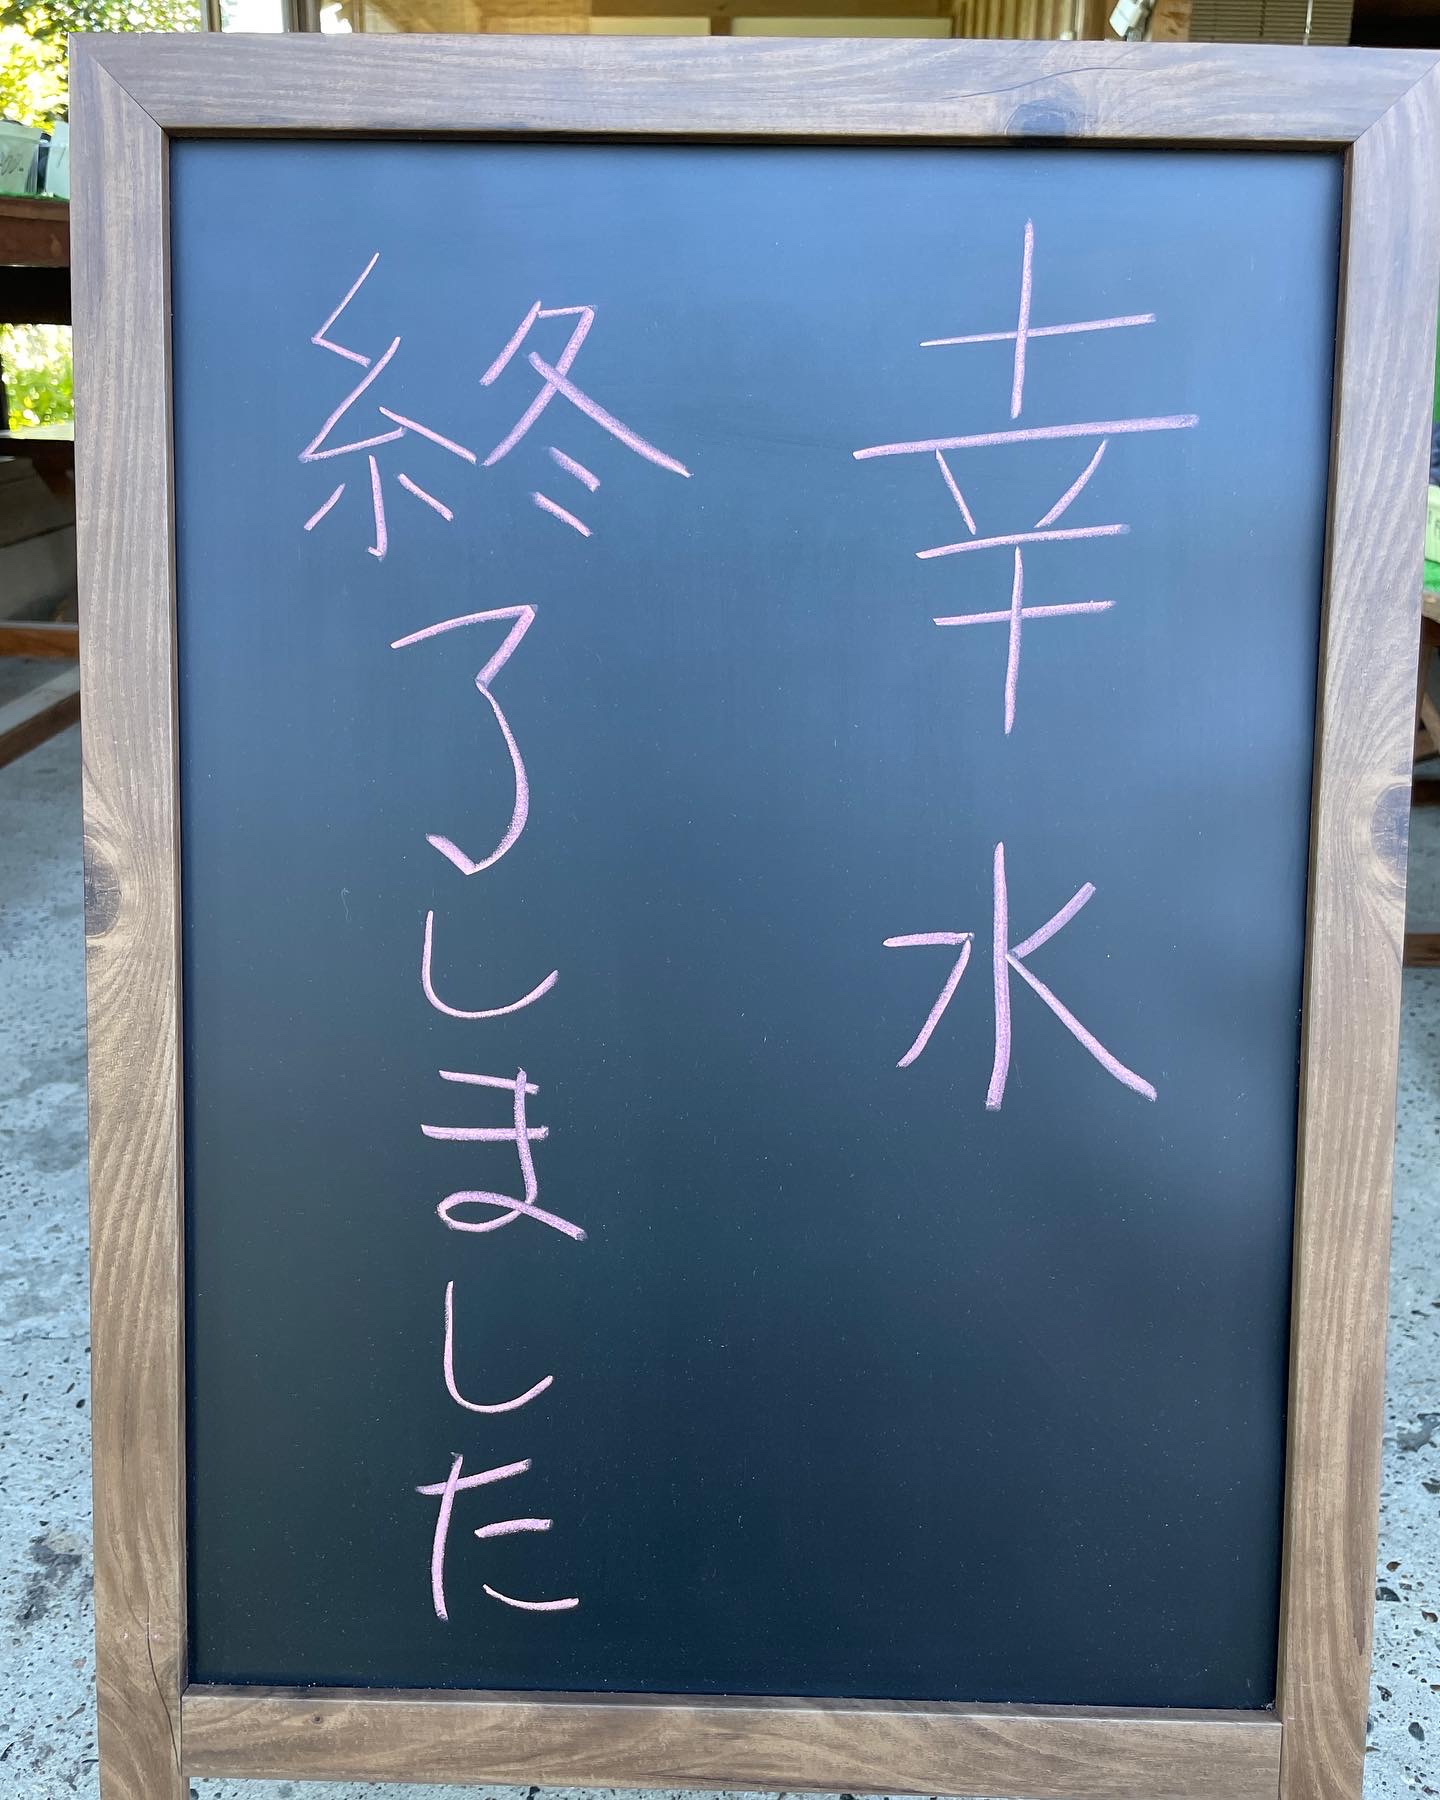 幸水
終了しました